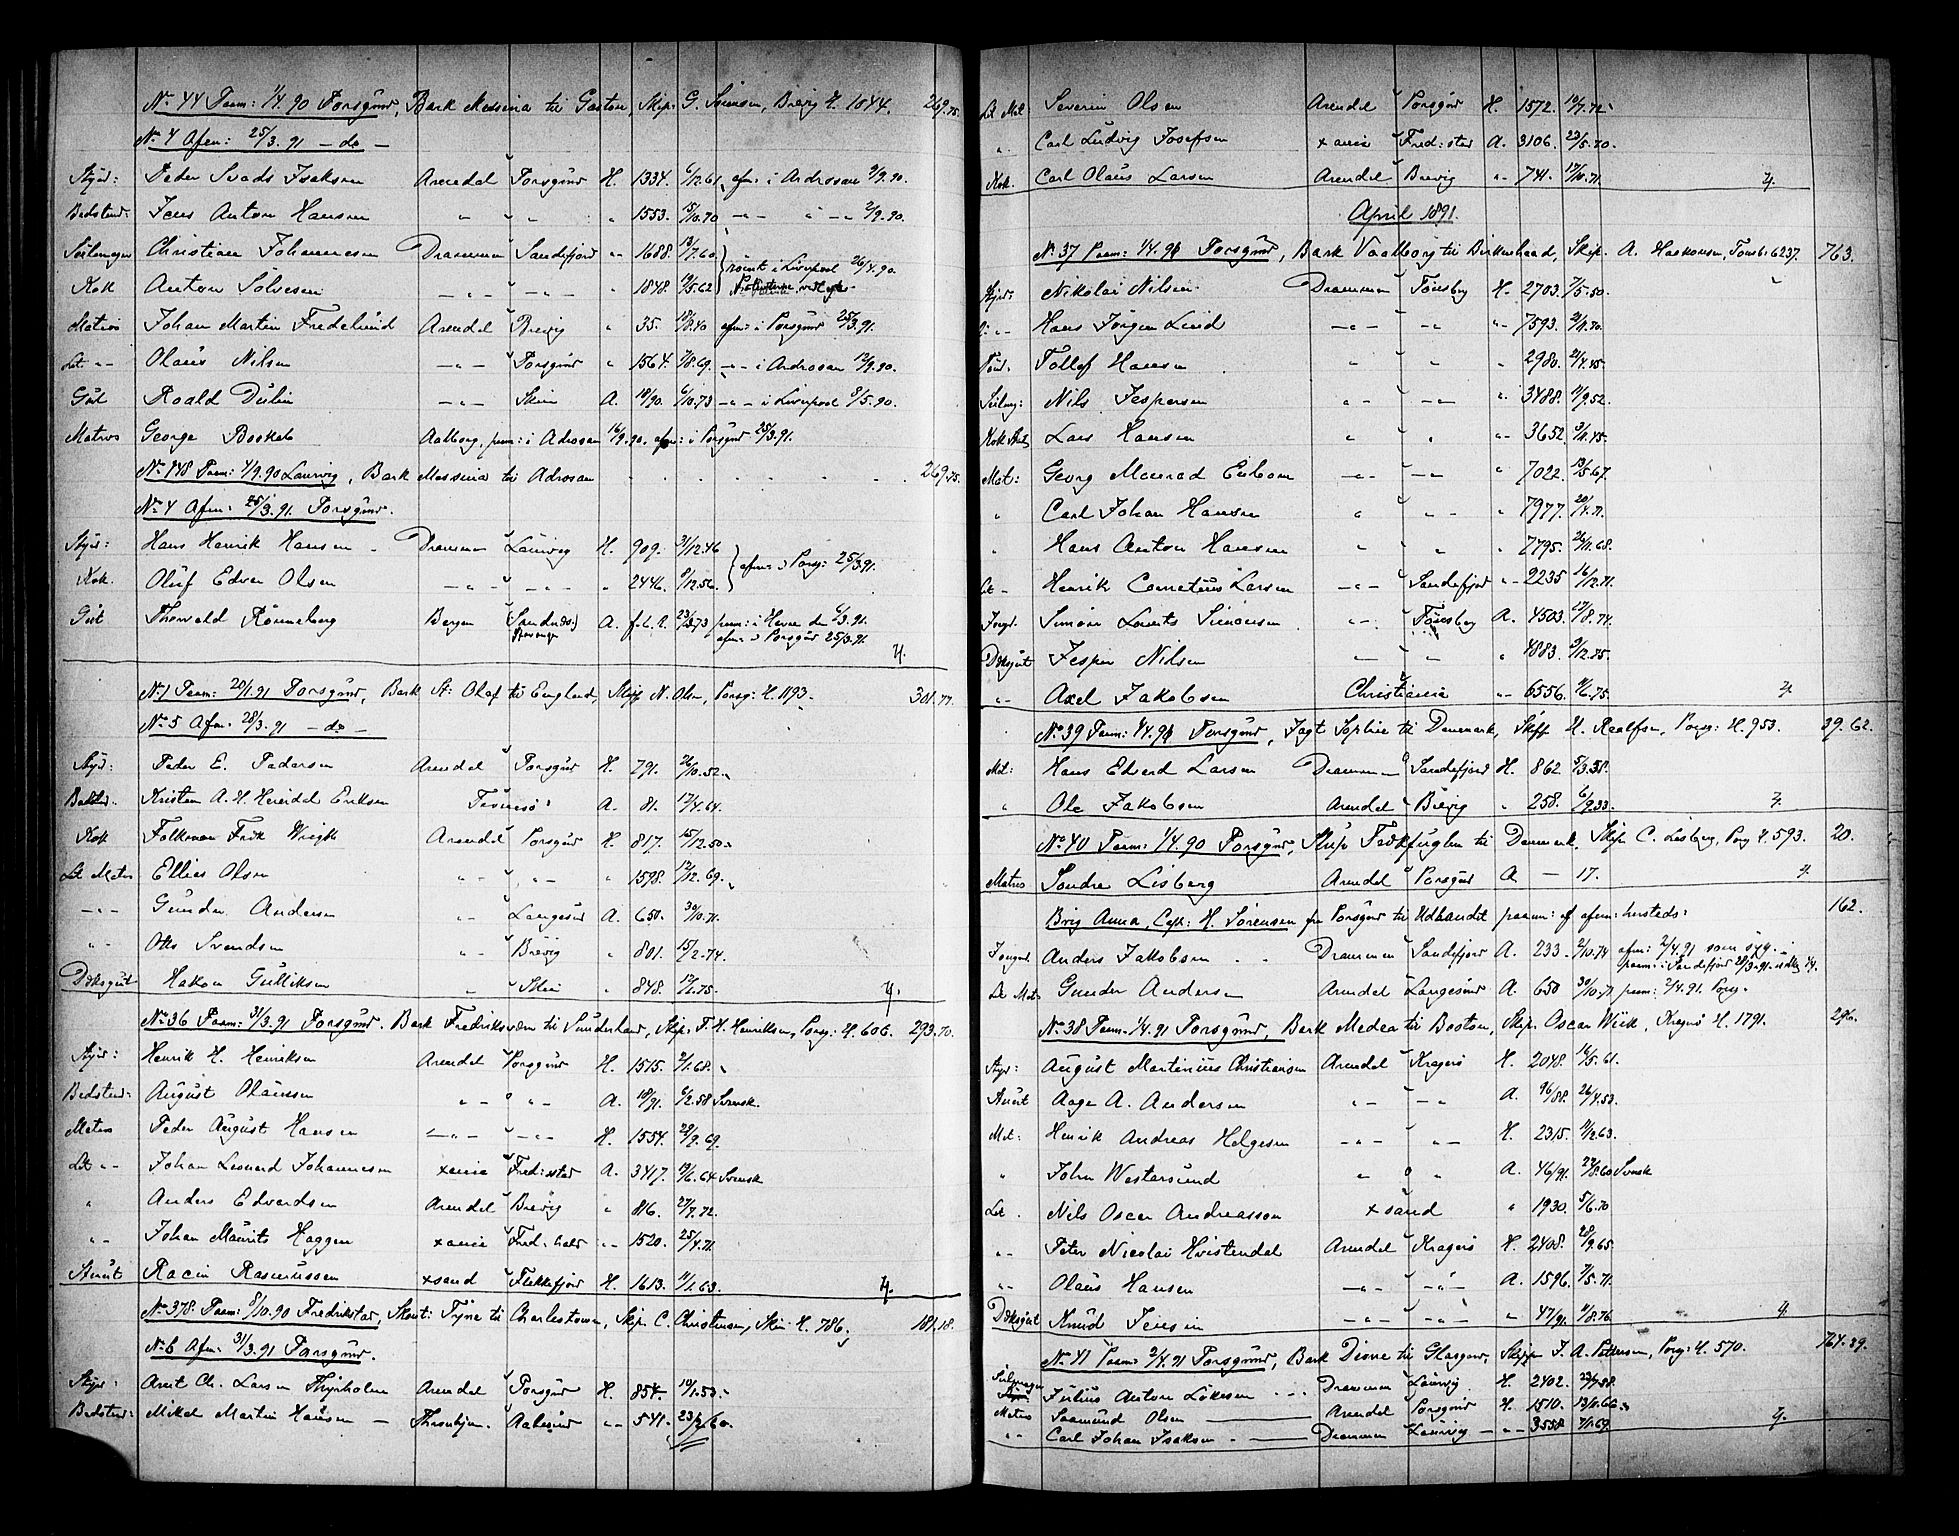 No 44 Paam: 1/4 90 Porsgrund, Bark Messina til Gaston, Skip. G. Sörensen, Brevig H. 1044. 269.75.
No 4 Afm: 25/3.91 - do -
Styr: Peder Isaksen Arendal Porsgrund H. 1334. 6/12.61, afm: i Ardrosan 2/9.90.
Bedstmd: Jens Anton Hansen " " " " 1553. 15/10.70 - " - " - " 2/9.90.
Seilmager Christian Johannesen Drammen Sandefjord " 1688. 13/7.60
Kok Anton Sölvesen - " - - " - " 1848. 19/5.62 römt i Liverpool 26/4.90.
Matros Johan Martin Fredelund Arendal Brevig " 35. 18/8.40 afm: i Porsgrund 25/3.91.
Let. " - Olaus Nilsen - " - Porsgrund " 1564. 7/8.69. - " - i Ardrosan 12/9.90.
Gut Roald Dulin - " - Skien A. 18/90. 6/10.73 - " - i Liverpool 8/5.90.
Matros George Aalborg, paam: i Adrosan 16/9.90. afm: i Porsgrund 25/3.91.
No 148 Paam: 4/9.90 Laurvig, Bark Messina til Adrosan 269.75.
No 4 Afm: 25/3.91. Porsgrund.
Styr: Hans Henrik Hansen - Drammen Laurvig H. 909. 31/12.46
Kok. Oluf Edvin Olsen - " - - " - " 2446. 9/12.56. afm: i Porsg: 25/3.91.
Gut Thorvald Rönneberg Bergen A. f.L.R. 23/3.73 paam: i Havre den 6/3.91.
Stavanger afm: i Porsgrund 25/3.91.
No 1 Paam: 20/1.91 Porsgrund, Bark St: Olaf til England, Skipp N. Olsen, Porsg: H. 1193. 301.77.
No 5 Afm: 28/3.91 - do -
Styr: Peder E. Pedersen Arendal Porsgrund H. 791. 26/10.52.
Bedstmd. Kristen A. H. Eriksen Tromsö A. 81. 17/4.64.
Kok Folkman Fredk Wright Arendal Porsgrund H. 817. 15/12.50.
Let Matros Ellias Olsen " - " - " 1598. 12/12.69.
- " - Gunder Andersen " - Langesund A. 650. 30/10.71.
" - Otto Svendsen " - Brevig " 801. 15/2.74.
Dæksgut Hakon Gulliksen " Skien " 848. 12/1.75.
No 36 Paam: 31/3.91 Porsgrund. Bark Fredriksværn til Sunderland, Skip. F. H. Henriksen, Porsg: H. 606. 293.70.
Styr: Henrik H. Henriksen Arendal Porsgrund H. 1515. 2/1.68.
Bedstmd: August Olaussen " - " - A. 18/91. 6/2.58 Svensk.
Matros Peder August Hansen - " - - " - H. 1554. 28/9.69.
Let " - Johan Leonard Johannesen xania Fred:stad A. 3417. 19/6.64 Svensk
" Anders Edvardsen Arendal Brevig " 816. 27/7.72.
" - Johan Maurits Haggen xania Fred.hald " - 1520. 25/4.71.
Stuert Racin Rasmussen xsand Flekkefjord H. 1613. 11/1.63.
No 378. Paam: 8/10.90 Fredrikstad, Skont: Tyne til Charlestown, Skip. C. Christensen, Skien H. 786. 181.18.
No 6 Afm: 31/3.91 Porsgrund.
Styr: Anet Chr. Larsen Thyrholm Arendal Porsgrund H. 854. 10/1.53.
Bedstmd: Mikal Martin Hansen - Thronhjem. Aalesund " - 541. 23/9.60.
Let Mat Severin Olsen Arendal Porsgrund H. 1572. 10/7.72.
" Carl Ludvig Josefsen xania Fred:stad A. 3106. 23/5.70.
Kok. Carl Olaus Larsen Arendal Brevig " 741. 17/10.71.
April 1891.
No 37 Paam: 1/4.91 Porsgrund, Bark Vaalborg til Birkenhead, Skip. A. Haakonsen, Tönsb: 6237. 763.
Styr: Nikolai Nilsen Drammen Tönsberg H. 2703. 7/5.50.
2: " - Hans Jörgen Lund - " - - " " 7593. 21/11.70.
Töm. Tollef Hansen " " " 2980. 21/4.45.
Seilmg: Nils Jespersen " - - " " 3488. 11/9.52.
Kok Stu. Lars Hansen " " " - 3652. 3/11.45.
Mat: Georg Monrad - " - - " - " 7022. 13/5.67.
" Carl Johan Hansen " " - " 7977. 20/4.71.
" Hans Anton Hansen " " " 7795. 26/11.68.
Let - Henrik Cornelius Larsen - " - Sandefjord " - 2235 16/12.71.
Jungm. Simon Laurits Simonsen " - Tönsberg A. 4503. 17/8.74.
Dæksgut Jesper Nilsen - " - " " 4883. 9/12.75.
" - Axel Jakobsen Christiania " - 6556. 11/6.75.
No 39 Paam: 1/4.91 Porsgrund, Jagt Sophie til Danemark, Skipp H. Realfsen, Porsg: H. 953. 39.62.
Mat: Hans Edvard Larsen Drammen Sandefjord H. 862. 5/3.38.
" Ole Jakobsen Arendal Brevig " 258. 6/9.33.
No 40 Paam: 1/4.90 Porsgrund, Slup Trækfuglen til Danmark, Skip. C. Lisberg, Porsg H. 593. 20.
Matros Sondre Lisberg Arendal Porsgrund A - 17.
Brig Anna, Cap: H. Sörensen fra Porsgrund til Udlandet paam: & afm: hersteds: 162.
Jungm. Anders Jakobsen - - Drammen Sandefjord A. 233. 2/10.74 afm: 2/4.91 som syg.
paam: i Sandefjord 28/3.91
Let Mat. Gunder Andersen Arendal Langesund A. 650 30/10.71 paam: 2/4.91. Porsg.
No 38 Paam. 1/4.91 Porsgrund, Bark Medea til Boston, Skip. Oscar Wiik, Kragerö H. 1791. 296.
Styr: August Martinius Christiansen Arendal Kragerö H. 2048. 16/5.61.
Stuert Aage A. Andersen " - " - A. 96/88. 26/4.53.
Mat: Henrik Andreas Helgesen - " - " - H. 2315. 11/2.63.
" John Westersund " - " A. 46/91. 27/8.60 Svensk
Let . Nils Oscar Andreasson xsand " 1930. 5/6.70
" - Peter Nicolai Hvistendal Arendal Kragerö H. 2408. 28/9.65.
" - Olaus Hansen - " - - " - A. 1596. 7/5.71.
Dæksgut Knud Jensen - " - - " " 47/91. 11/8.76.
No 41 Paam: 2/4.91 Porsgrund, Bark Dione til Glasgow, Skipp. J. A. Pettersen, Porsg: H. 570. 764.39.
Seilmager Julius Anton Lökesen - - - Drammen Laurvig H. 2402. 22/7.58.
Matros Saamund Olsen - Arendal Porsgrund H. 1510. 13/11.66.
" - Carl Johan Isaksen - - Drammen Laurvig - " - 3558. 7/1.69.